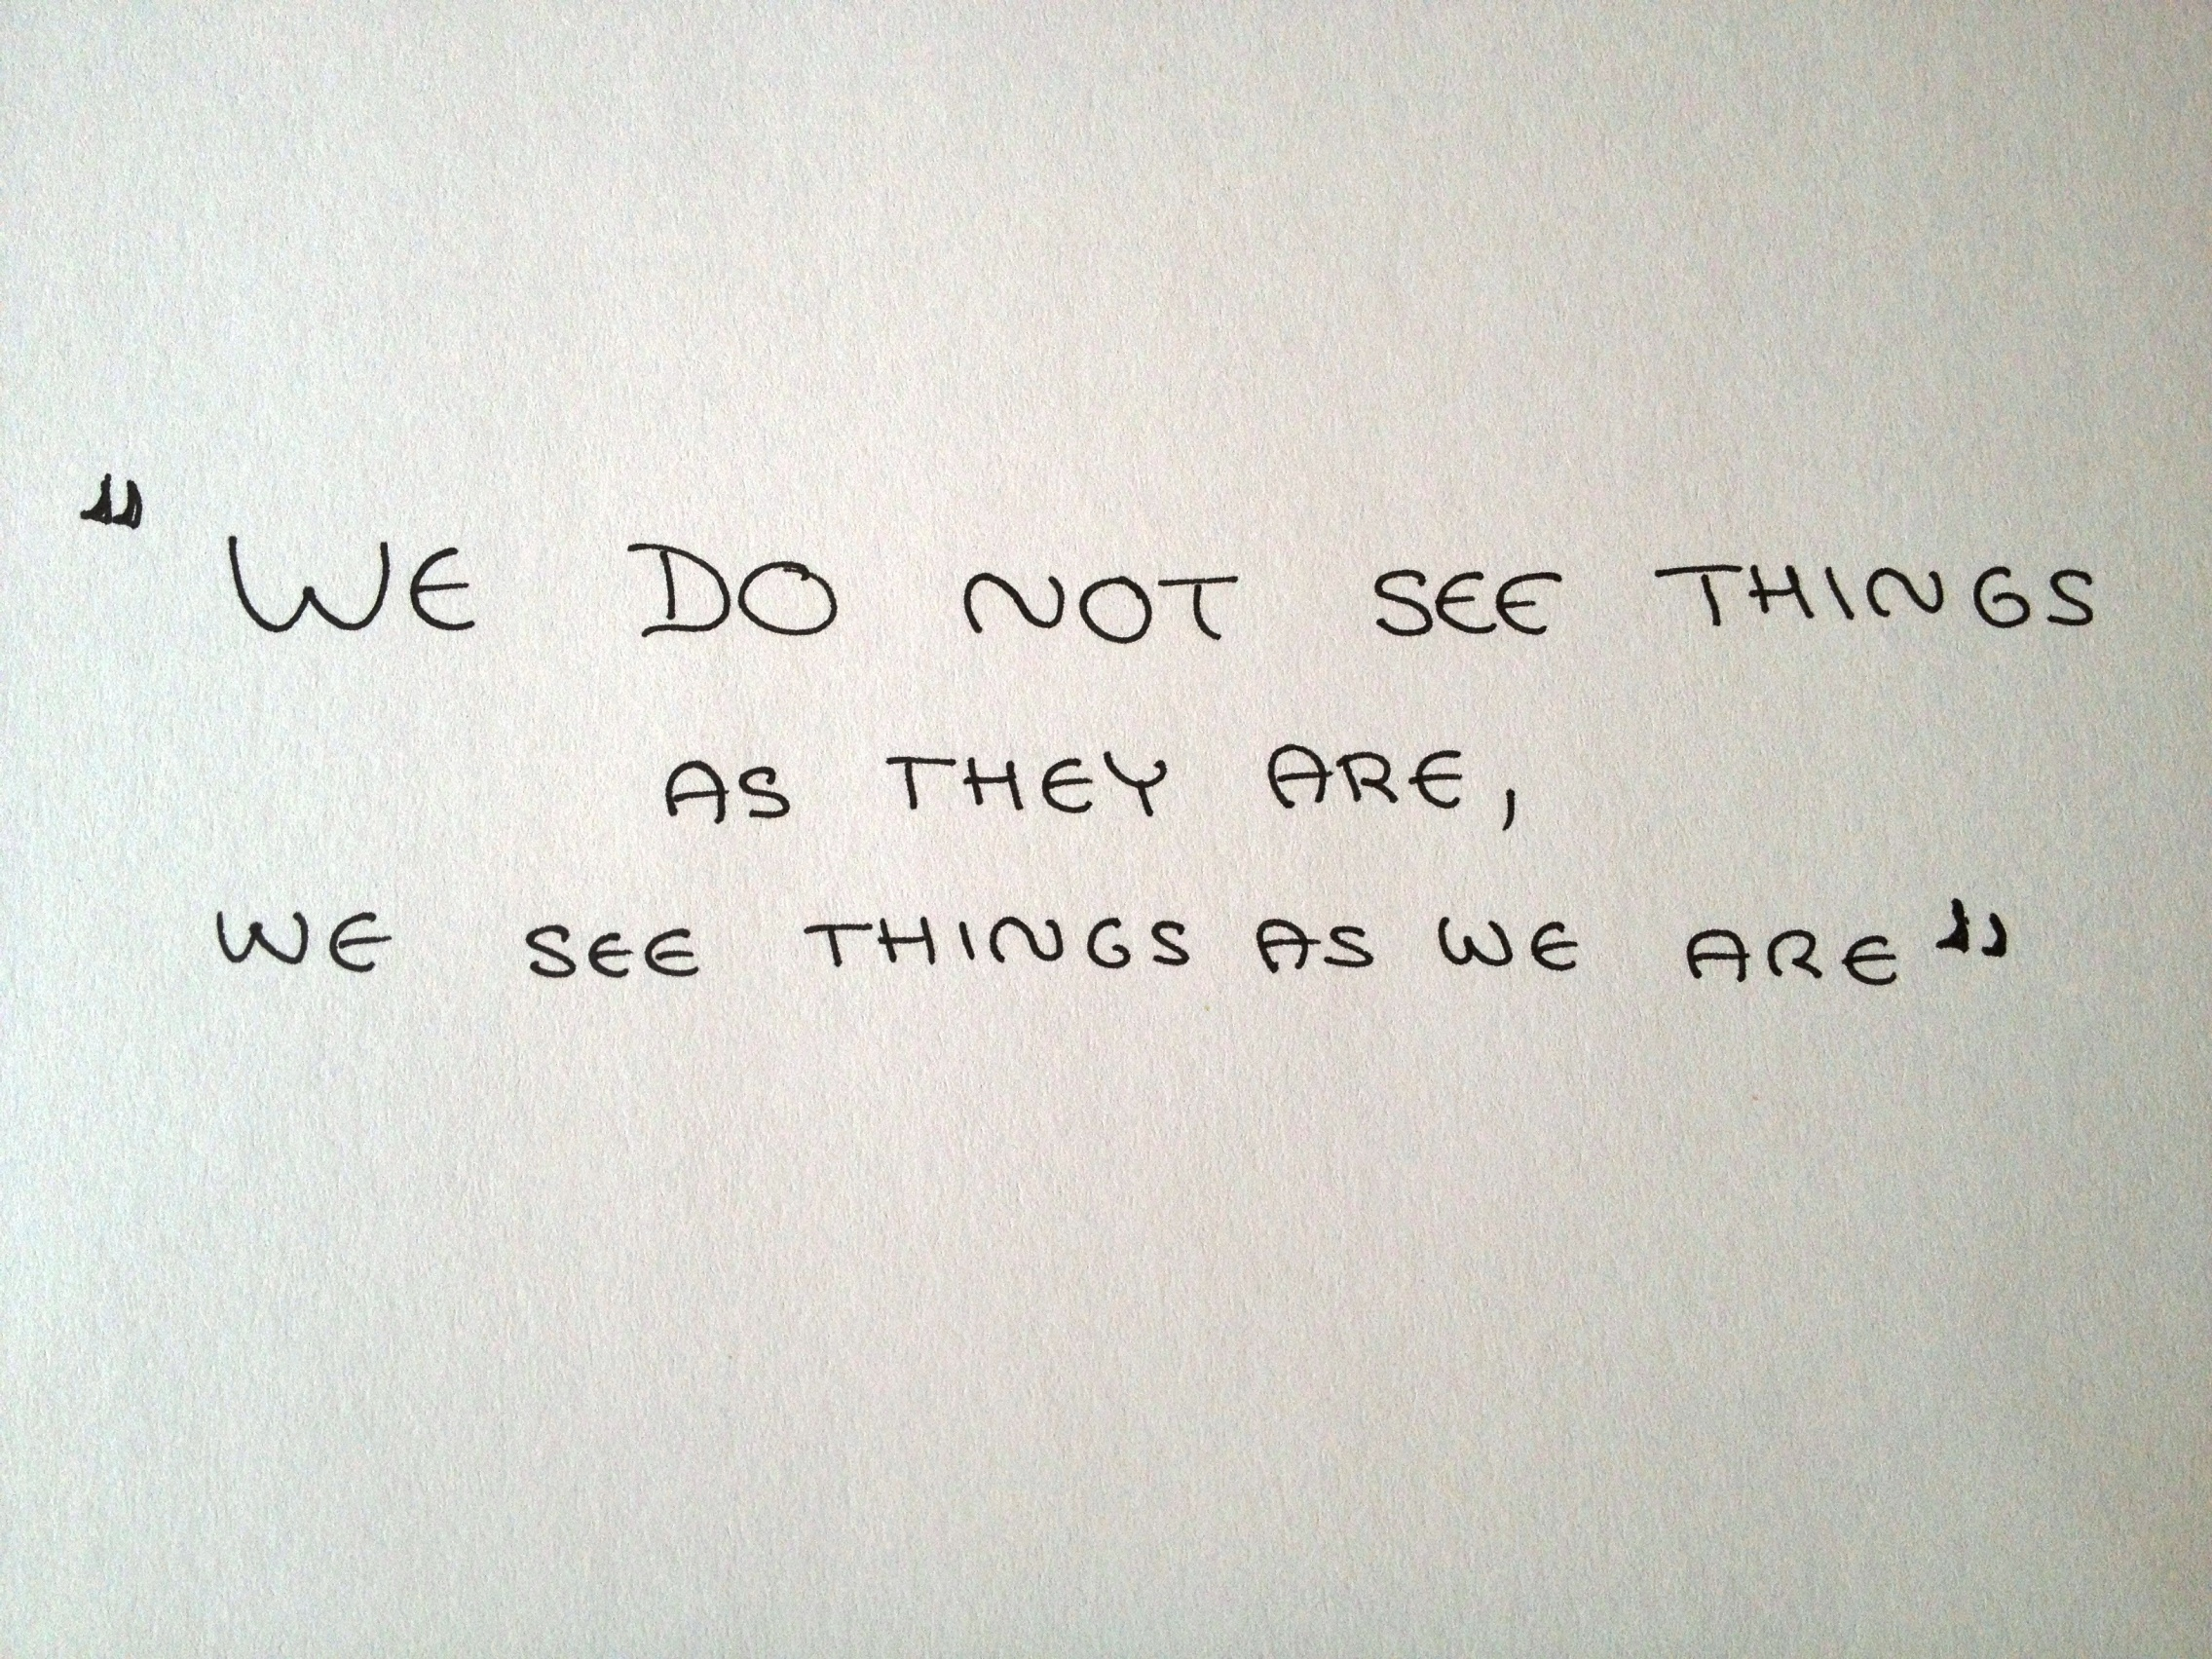 "WE DO NOT SEE THINGS
AS THEY ARE,
WE SEE THINGS AS WE ARE"